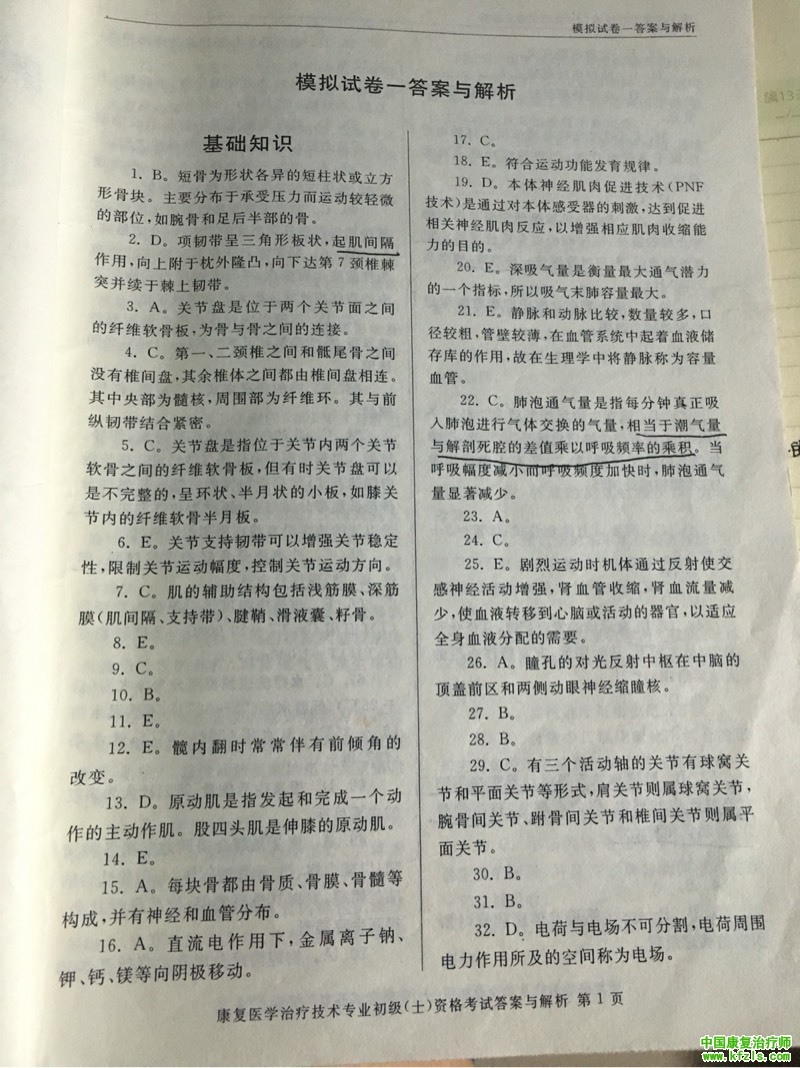 模拟试卷一答案与解析
模拟试卷一答案与解析
基础知识
1. B。短骨为形状各异的短柱状或立方
形骨块。主要分布于承受压力而运动较轻微
的部位,如腕骨和足后半部的骨。
2. D。项韧带呈三角形板状,起肌间隔
作用,向上附于枕外隆凸,向下达第7颈椎棘
突并续于棘上韧带。
3. A。关节盘是位于两个关节面之间
的纤维软骨板,为骨与骨之间的连接。
4. C。第一、二颈椎之间和骶尾骨之间
没有椎间盘,其余椎体之间都由椎间盘相连。
其中央部为髓核,周围部为纤维环。其与前
纵韧带结合紧密。
5. C。关节盘是指位于关节内两个关节
软骨之间的纤维软骨板,但有时关节盘可以
是不完整的,呈环状、半月状的小板,如膝关
节内的纤维软骨半月板。
6. E。关节支持韧带可以增强关节稳定
性,限制关节运动幅度,控制关节运动方向。
7. C。肌的辅助结构包括浅筋膜、深筋
膜(肌间隔、支持带)、腱鞘、滑液囊、籽骨。
8. E。
9. C。
10. B。
11. E。
12. E。髋内翻时常常伴有前倾角的
改变。
13. D。原动肌是指发起和完成一个动
作的主动作肌。股四头肌是伸膝的原动肌。
14. E。
15. A。每块骨都由骨质、骨膜、骨髓等
构成,并有神经和血管分布。
16. A。直流电作用下,金属离子钠、
钾、钙、镁等向阴极移动。
17. C。
18. E。符合运动功能发育规律。
19. D。本体神经肌肉促进技术(PNF
技术)是通过对本体感受器的刺激,达到促进
相关神经肌肉反应,以增强相应肌肉收缩能
力的目的。
20. E。深吸气量是衡量最大通气潜力
的一个指标,所以吸气末肺容量最大。
21. E。静脉和动脉比较,数量较多,口
径较粗,管壁较薄,在血管系统中起着血液储
存库的作用,故在生理学中将静脉称为容量
血管。
22. C。肺泡通气量是指每分钟真正吸
入肺泡进行气体交换的气量,相当于潮气量
与解剖死腔的差值乘以呼吸频率的乘积。当
呼吸幅度减小而呼吸频度加快时,肺泡通气
量显著减少。
23. A。
24. C。
25. E。剧烈运动时机体通过反射使交
感神经活动增强,肾血管收缩,肾血流量减
少,使血液转移到心脑或活动的器官,以适应
全身血液分配的需要。
26. A。瞳孔的对光反射中枢在中脑的
顶盖前区和两侧动眼神经缩瞳核。
27. B。
28. B。
29. C。有三个活动轴的关节有球窝关
节和平面关节等形式,肩关节则属球窝关节,
腕骨间关节、跗骨间关节和椎间关节则属平
面关节。
30. B。
31. B。
32. D。电荷与电场不可分割,电荷周围
电力作用所及的空间称为电场。
康复医学治疗技术专业初级(士)资格考试答案与解析 第1页
中国康复治疗师
www.kfzls.com